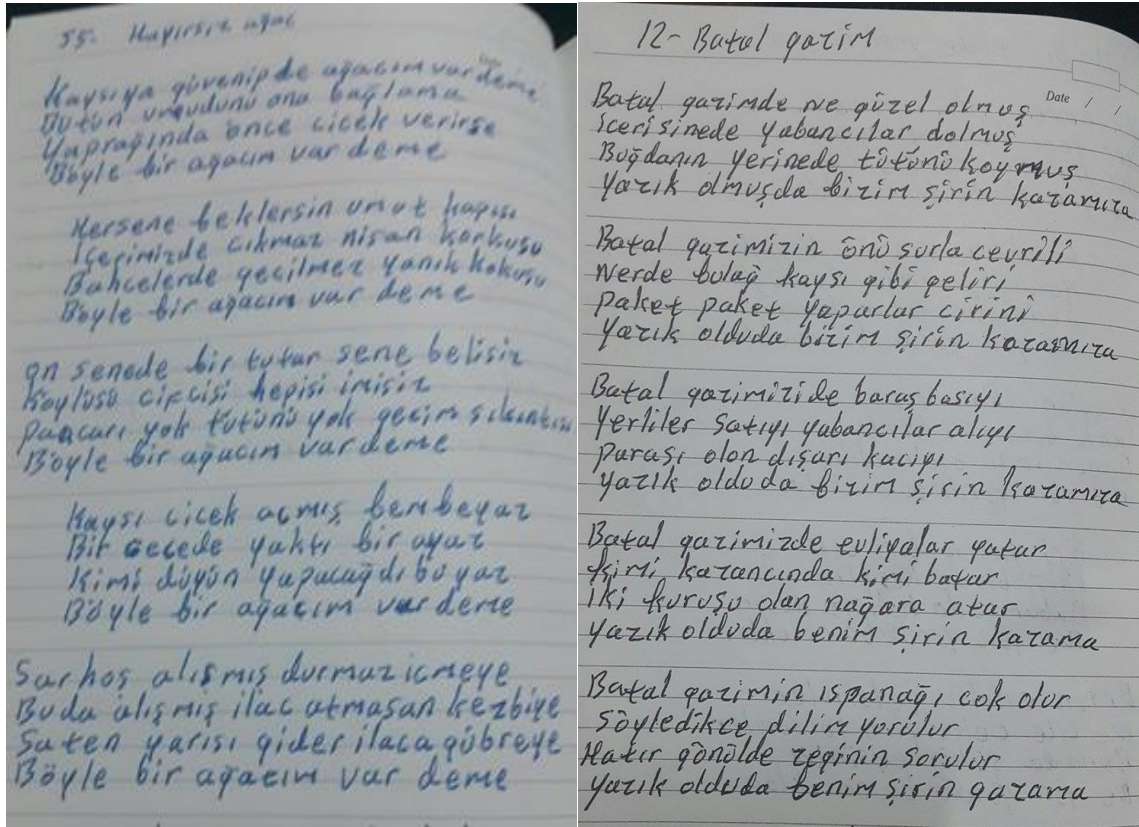 55- Hayırsız ağaç
Kaysıya güvenipde ağacım var deme
Bütün umudunu ona bağlama
Yaprağında önce cicek verirse
Böyle bir ağacım var deme
Hersene beklersin umut kapısı
İçerimizde cıkmaz nisan korkusu
Bahcelerde gecilmez yanık kokusu
Böyle bir ağacım var deme
on senede bir tutar sene belisiz
Köylüsü cifcisi hepisi imisiz
pancarı yok tütünü yok gecim sıkıntısı
Böyle bir ağacım var deme
Kaysı cicek açmış bembeyaz
Bir gecede yaktı bir ayaz
Kimi düğün yapacağdı bu yaz
Böyle bir ağacım var deme
Sarhoş alışmış durmaz icmeye
Buda alışmış ilac atmasan kezbiye
Saten yarısı gider ilaca gübreye
Böyle bir ağacım var deme
12- Batal gazim
Date / /
Batal gazimde ne güzel olmuş
icerisinede yabancılar dolmuş
Buğdanın yerinede tütünü koymuş
Yazık olmuşda bizim şirin kazamıza
Batal gazimizin önü surla cevrili
Nerde bulağ kaysı gibi geliri
paket paket yaparlar cirini
Yazık olduda bizim şirin kazamıza
Batal gazimizide baraş basıyı
Yerliler satıyı yabancılar alıyı
parası olan dışarı kacıyı
Yazık olduda bizim şirin kazamıza
Batal gazimizde evliyalar yatar
Kimi kazancında kimi batar
İki kuruşu olan nağara atar
Yazık olduda benim şirin kazama
Batal gazimin ıspanağı cok olur
Söyledikce dilim yorulur
Hatır gönülde zeginin sorulur
Yazık olduda benim şirin gazama